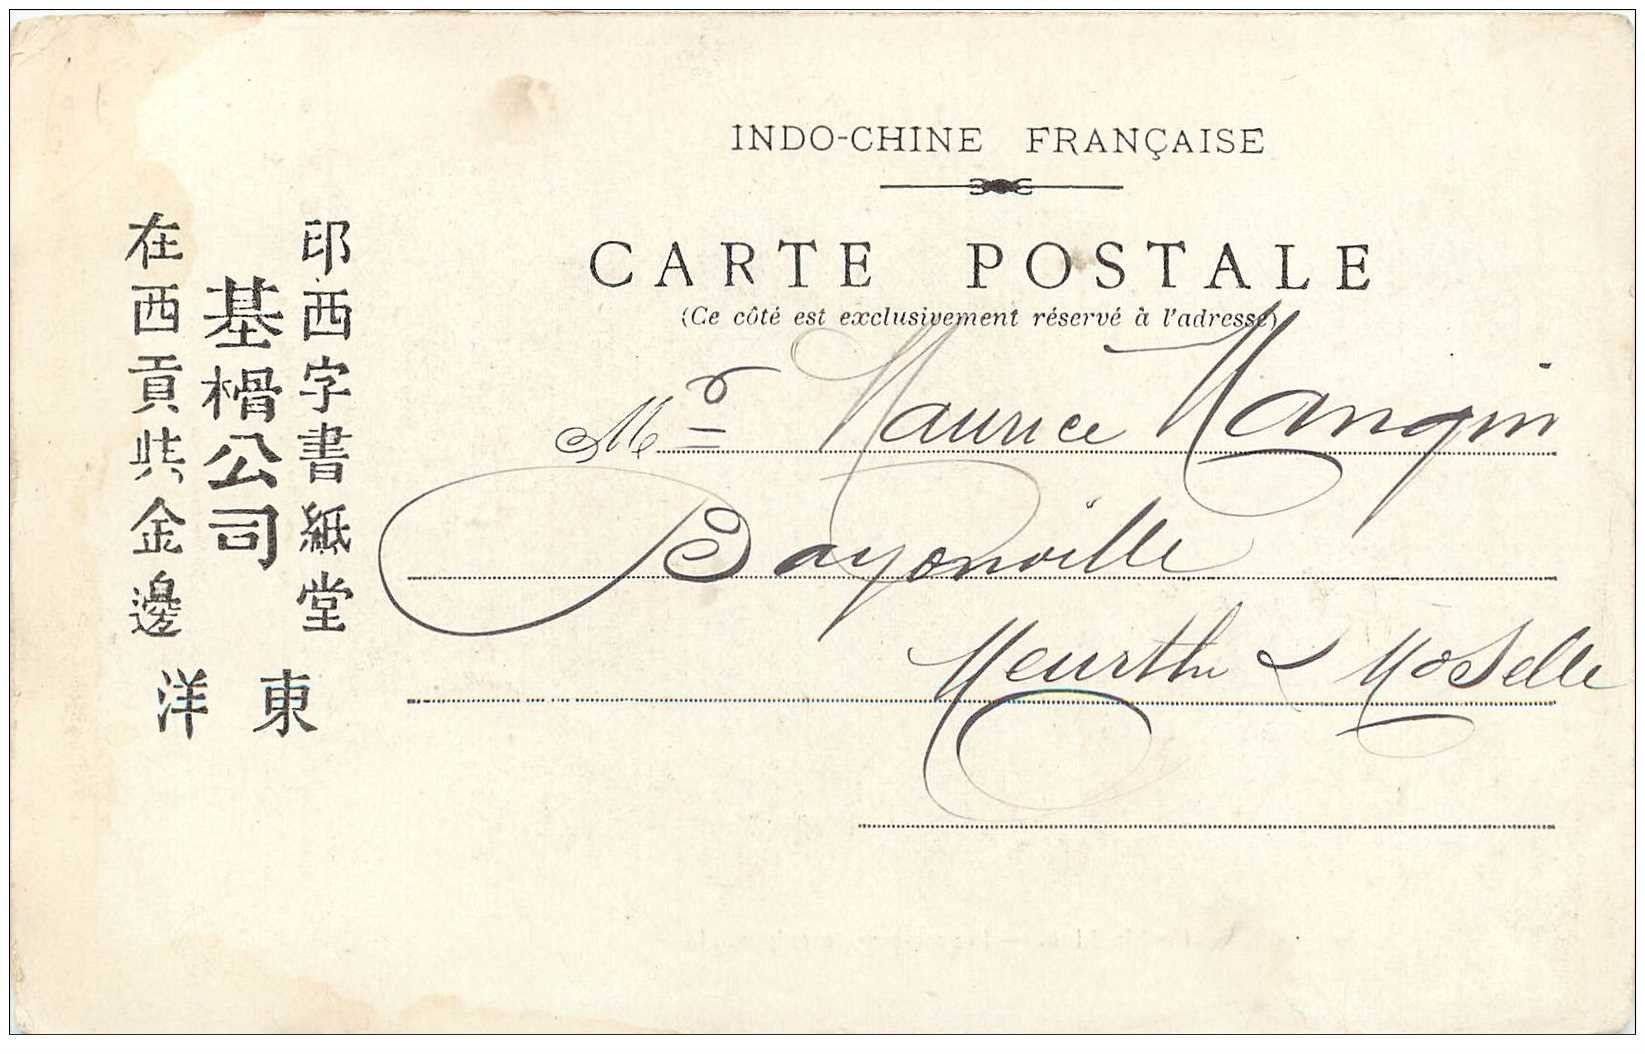 INDO-CHINE FRANÇAISE
CARTE POSTALE
(Ce côté est exclusivement réservé à l'adresse)
Mr Maurice Mangin
Bayonville
Meurthe & Moselle
印西字書紙堂
基榾公司
在西貢柴金邊
東洋